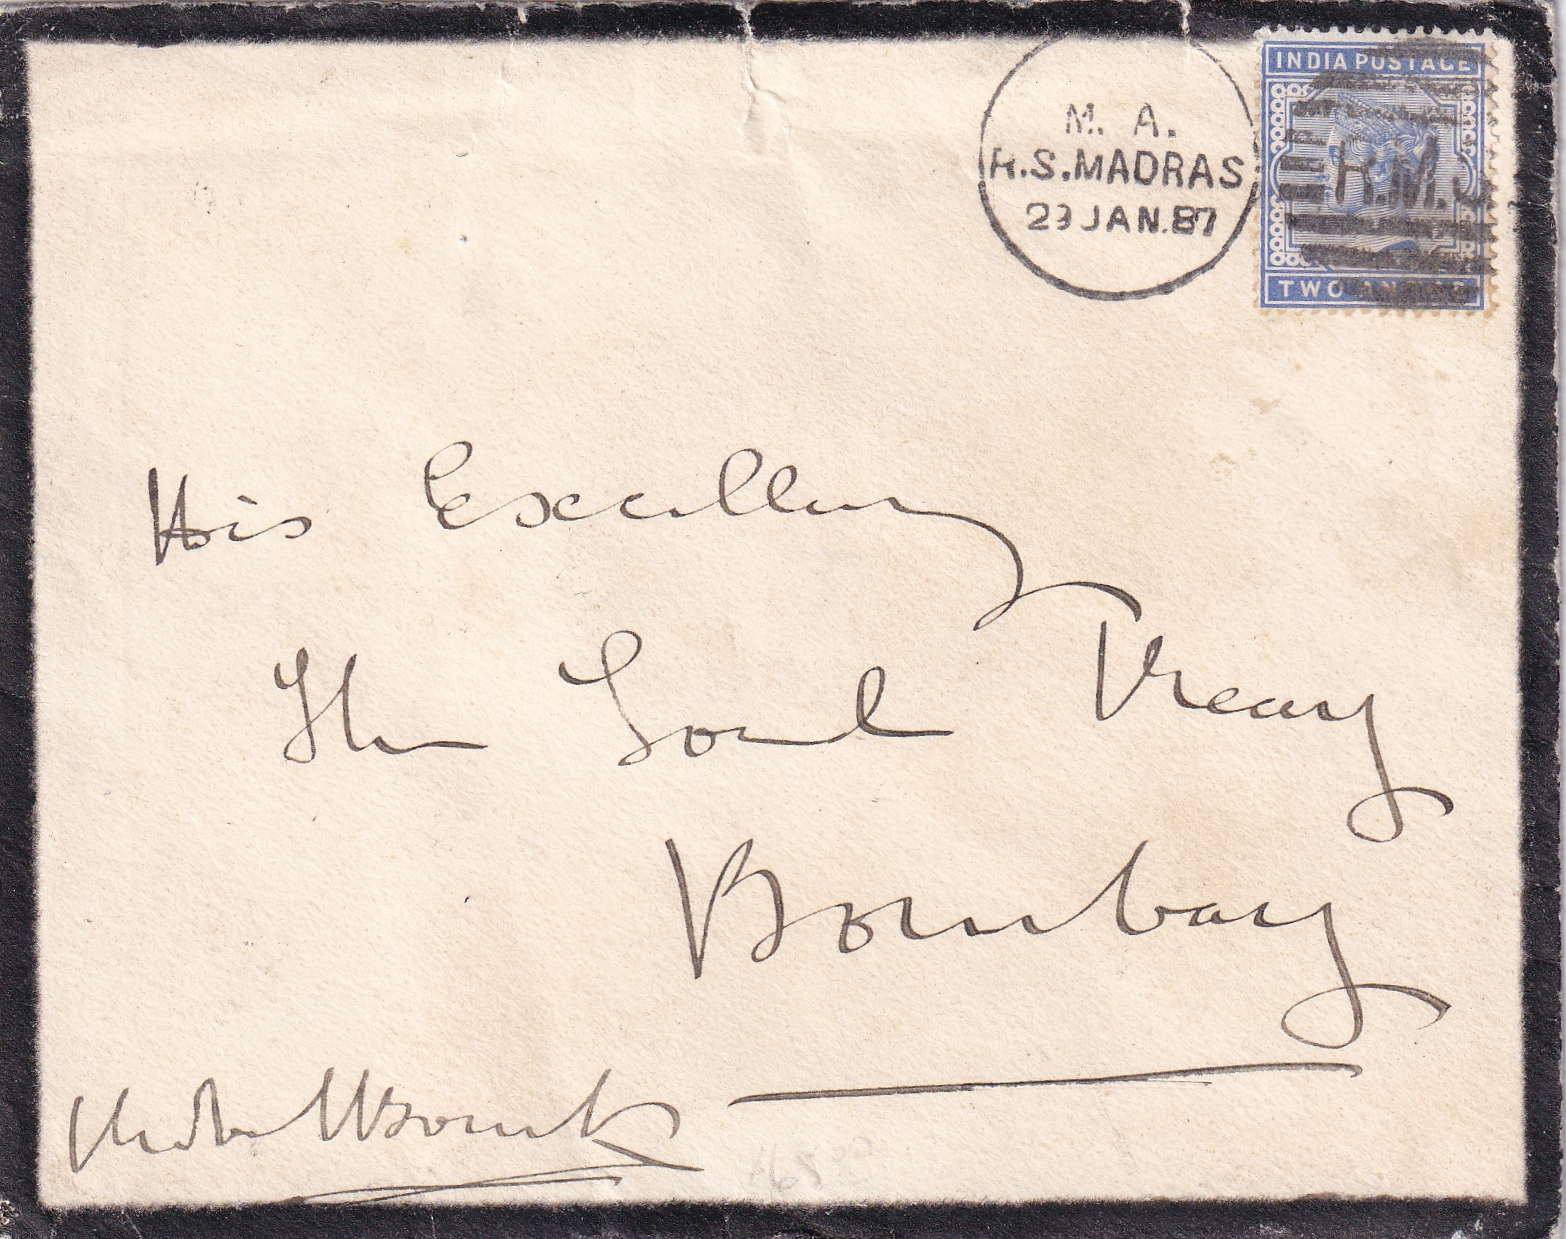 INDIA POSTAGE
M. A.
R.S. MADRAS
29 JAN. 87
R.M.S.
TWO ANNAS
His Excellency
The Lord Reay
Bombay